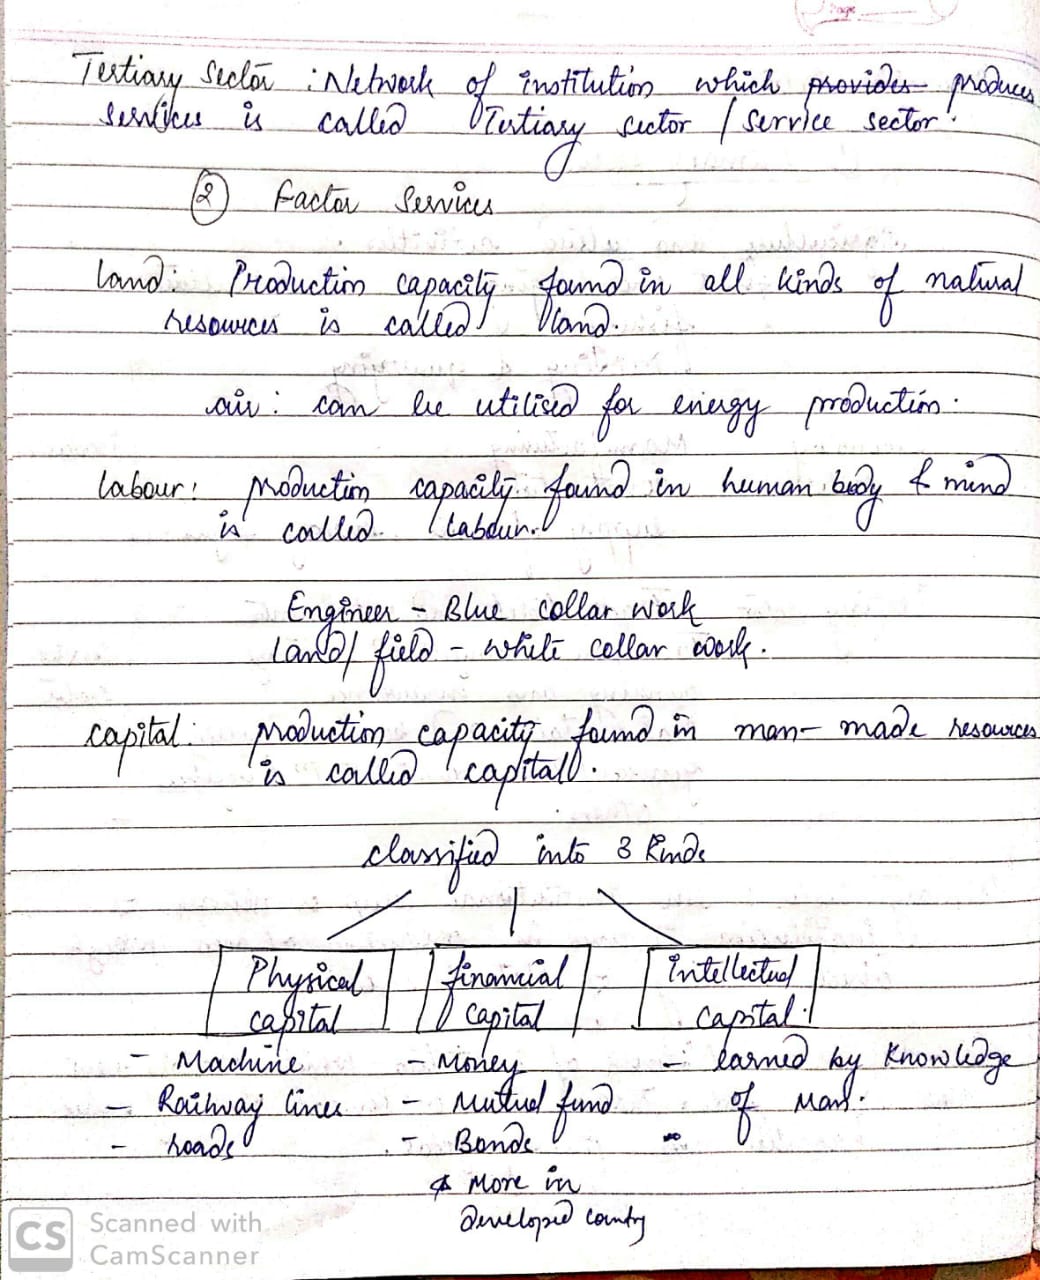 Page
Tertiary Sector : Network of institution which provides produces
services is called Tertiary sector / service sector.
② Factor Services
Land: Production capacity found in all kinds of natural
resources is called land.
air : can be utilised for energy production.
Labour: production capacity found in human body & mind
is called labour.
Engineer - Blue collar work
land/ field - white collar work.
Capital: production capacity found in man-made resources
is called capital.
classified into 3 kinds
Physical capital
- Machine
- Railway lines
- roads
financial capital
- Money
- Mutual fund
- Bonds
& More in
developed country
intellectual capital.
- earned by knowledge
of man.
CS Scanned with
CamScanner